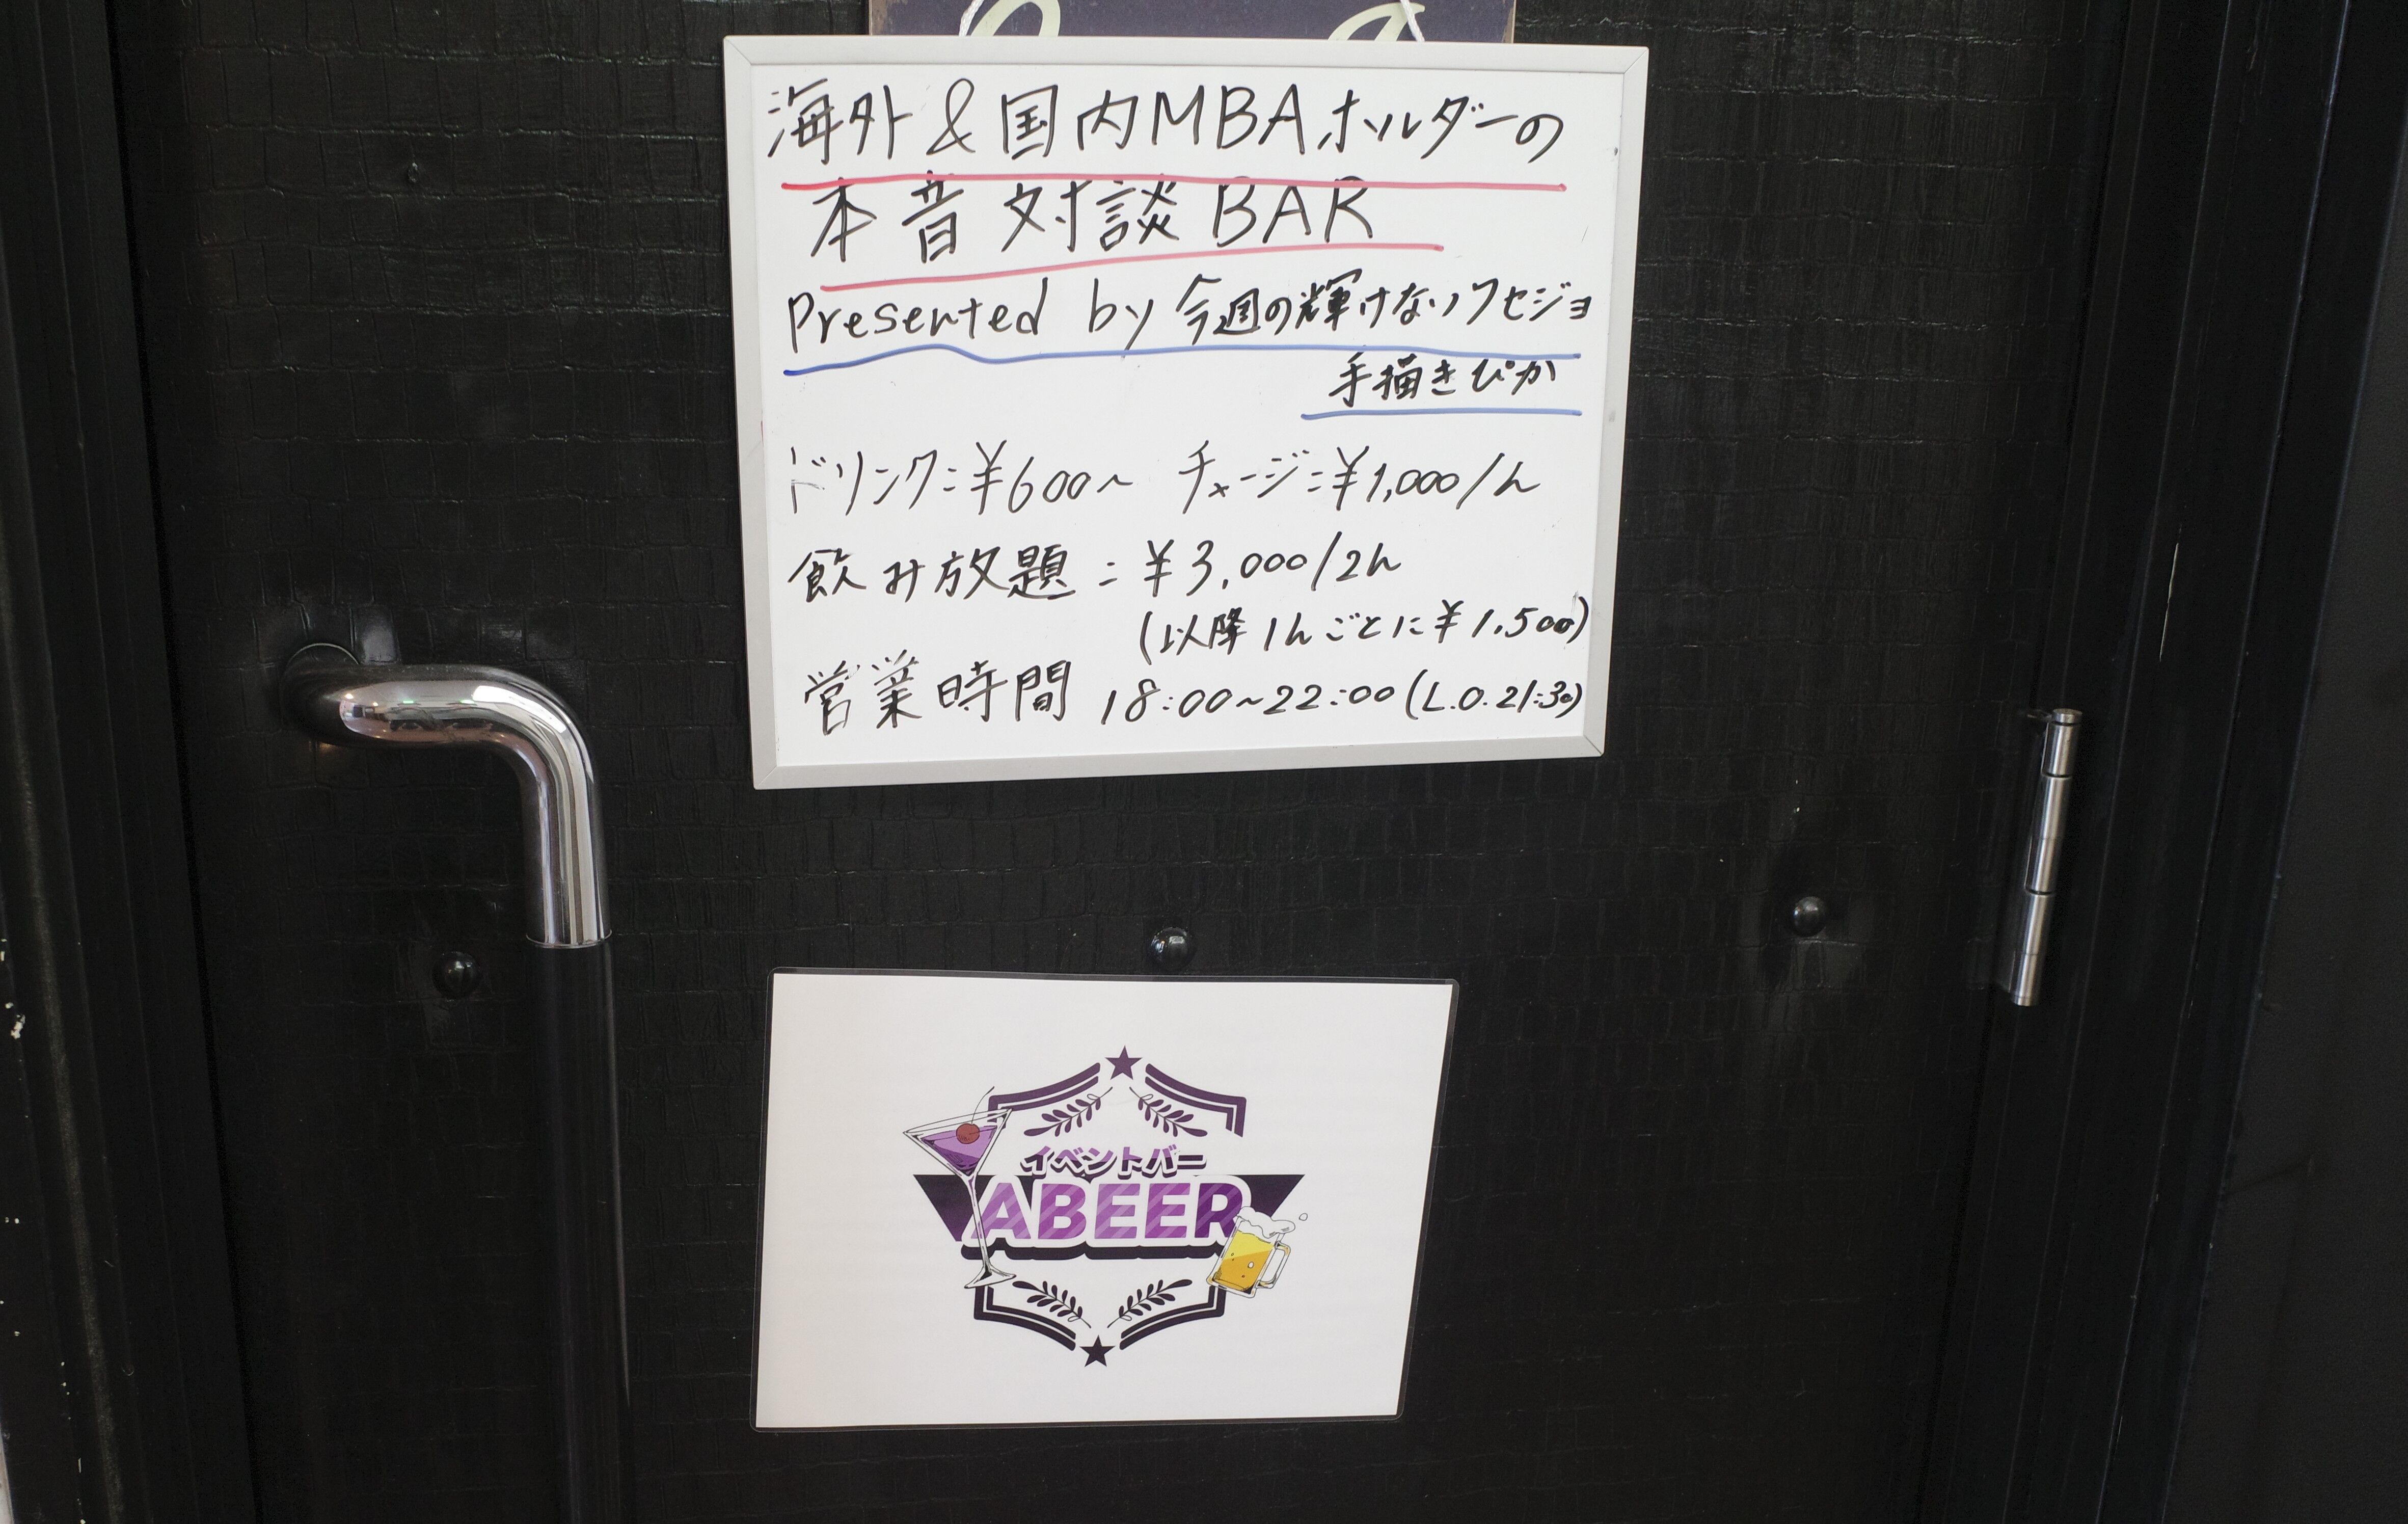 海外&国内MBAホルダーの
本音対談BAR
Presented by 今週の輝けないワセジョ
手描きぴか
ドリンク:¥600~ チャージ:¥1,000/h
飲み放題:¥3,000/2h
(以降1hごとに¥1,500)
営業時間 18:00~22:00(L.O.21:30)
イベントバー
ABEER